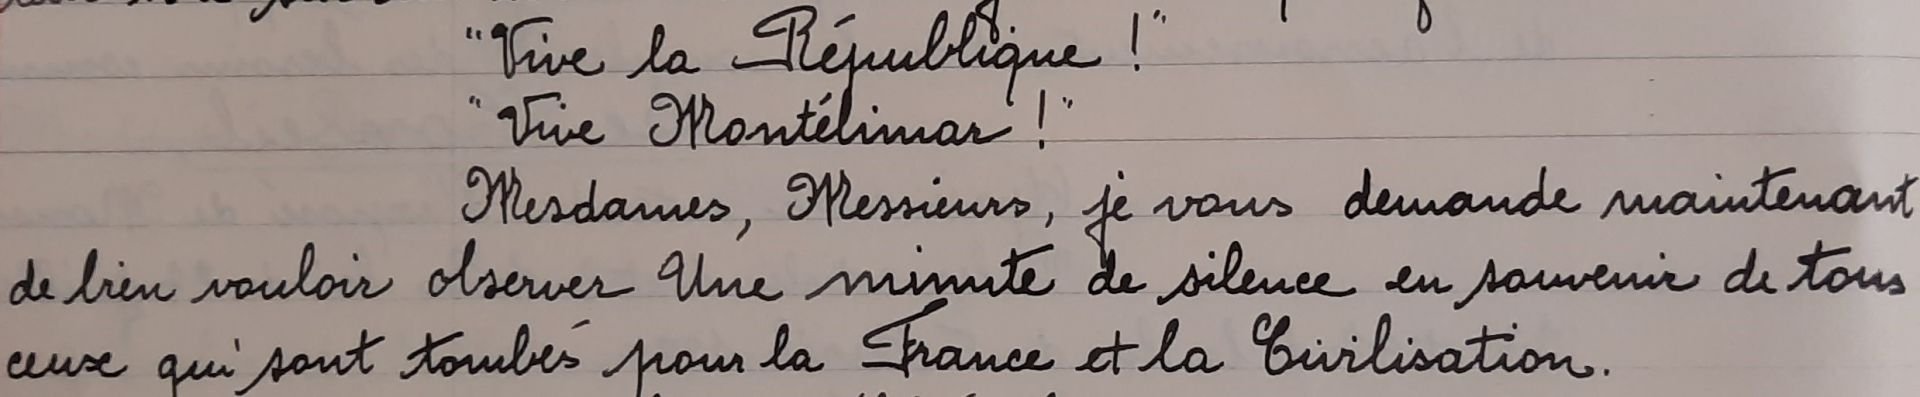 "Vive la République !"
"Vive Montélimar !"
Mesdames, Messieurs, je vous demande maintenant
de bien vouloir observer Une minute de silence en souvenir de tous
ceux qui sont tombés pour la France et la Civilisation.